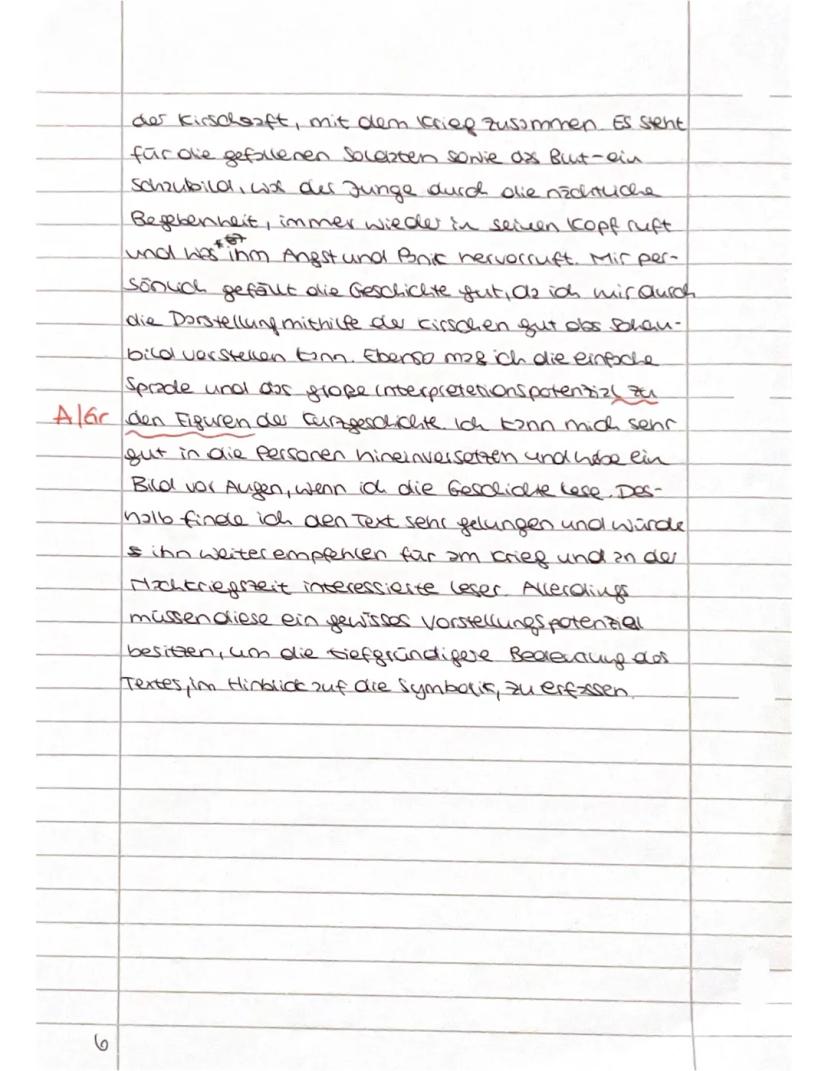 der Kirschsaft, mit dem Krieg zusammen. Es steht
für die gefallenen Soldaten sowie das Blut - ein
Schaubild, was der Junge durch die nächtliche
Begebenheit, immer wieder in seinen Kopf ruft
und was ihm Angst und Panik hervorruft. Mir per-
sönlich gefällt die Geschichte gut, da ich mir durch
die Darstellung mithilfe der Kirschen gut das Schau-
bild vorstellen kann. Ebenso mag ich die einfache
Sprache und das große Interpretationspotenzial zu
A/Gr den Figuren der Kurzgeschichte. Ich kann mich sehr
gut in die Personen hineinversetzen und habe ein
Bild vor Augen, wenn ich die Geschichte lese. Des-
halb finde ich den Text sehr gelungen und würde
ihn weiterempfehlen für am Krieg und an der
Nachkriegszeit interessierte Leser. Allerdings
müssen diese ein gewisses Vorstellungspotenzial
besitzen, um die tiefgründigere Bedeutung des
Textes, im Hinblick auf die Symbolik, zu erfassen.
6